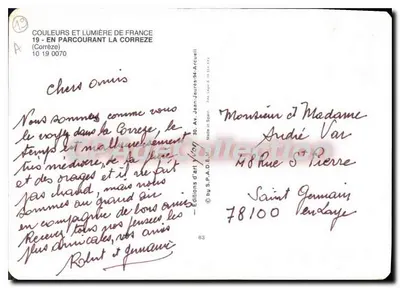 COULEURS ET LUMIÈRE DE FRANCE
19 - EN PARCOURANT LA CORREZE
(Corrèze)
10 19 0070
Chers amis
Nous sommes comme vous
le voyez dans la Correze, le
temps est malheureusement
très médiocre, de la pluie
et des orages et il ne fait
pas chaud, mais nous
sommes au grand air
en compagnie de bons amis
Recevez tous nos pensées, les
plus amicales, vos amis
Robert et Germaine
Monsieur et Madame
André Var
48 Rue St Pierre
Saint Germain
78100 en Laye
62